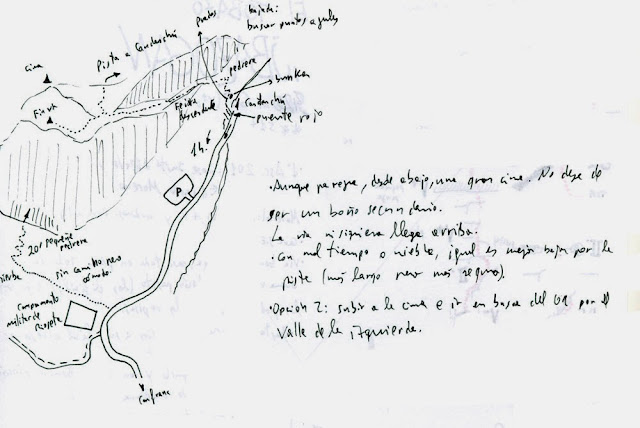 bajada:
prados
buscar puntos azules
Pista a Candanchú
cima
pedrera
bunker
Fin vía
Feixa
descendente
Candanchú
puente rojo
1h.
P
20' pequeña
pedrera
hierba
sin camino pero
cómodo
campamento
militar de
Rioseta
Canfranc
·Aunque parezca, desde abajo, una gran cima. No deja de
ser un bonio secundario.
La vía ni siquiera llega arriba.
·Con mal tiempo o niebla, igual es mejor bajar por la
pista (más largo pero más seguro).
·Opción 2: subir a la cima e ir en busca del por el
Valle de la izquierda.